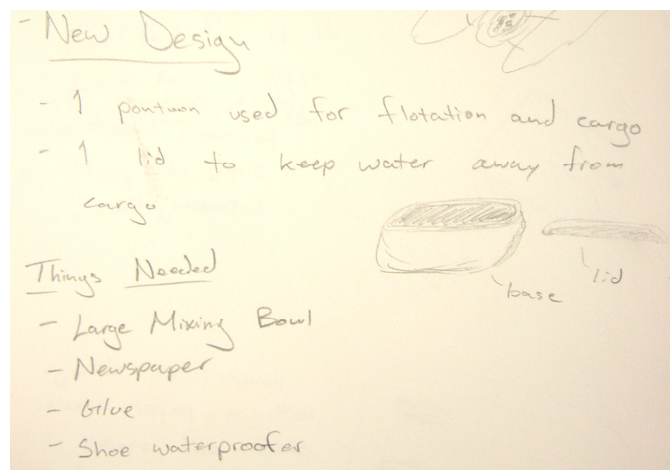 - New Design
- 1 pontoon used for flotation and cargo
- 1 lid to keep water away from
cargo
base
lid
Things Needed
- Large Mixing Bowl
- Newspaper
- Glue
- Shoe waterproofer